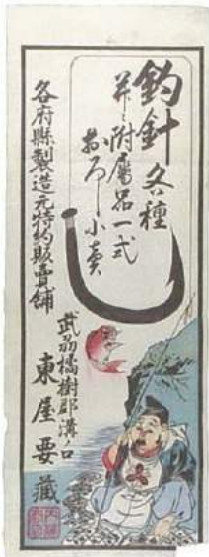 釣針各種
并ニ附属品一式
卸シ小賣
各府縣製造元特約販賣舗
武州橘樹郡溝ノ口
東屋要藏